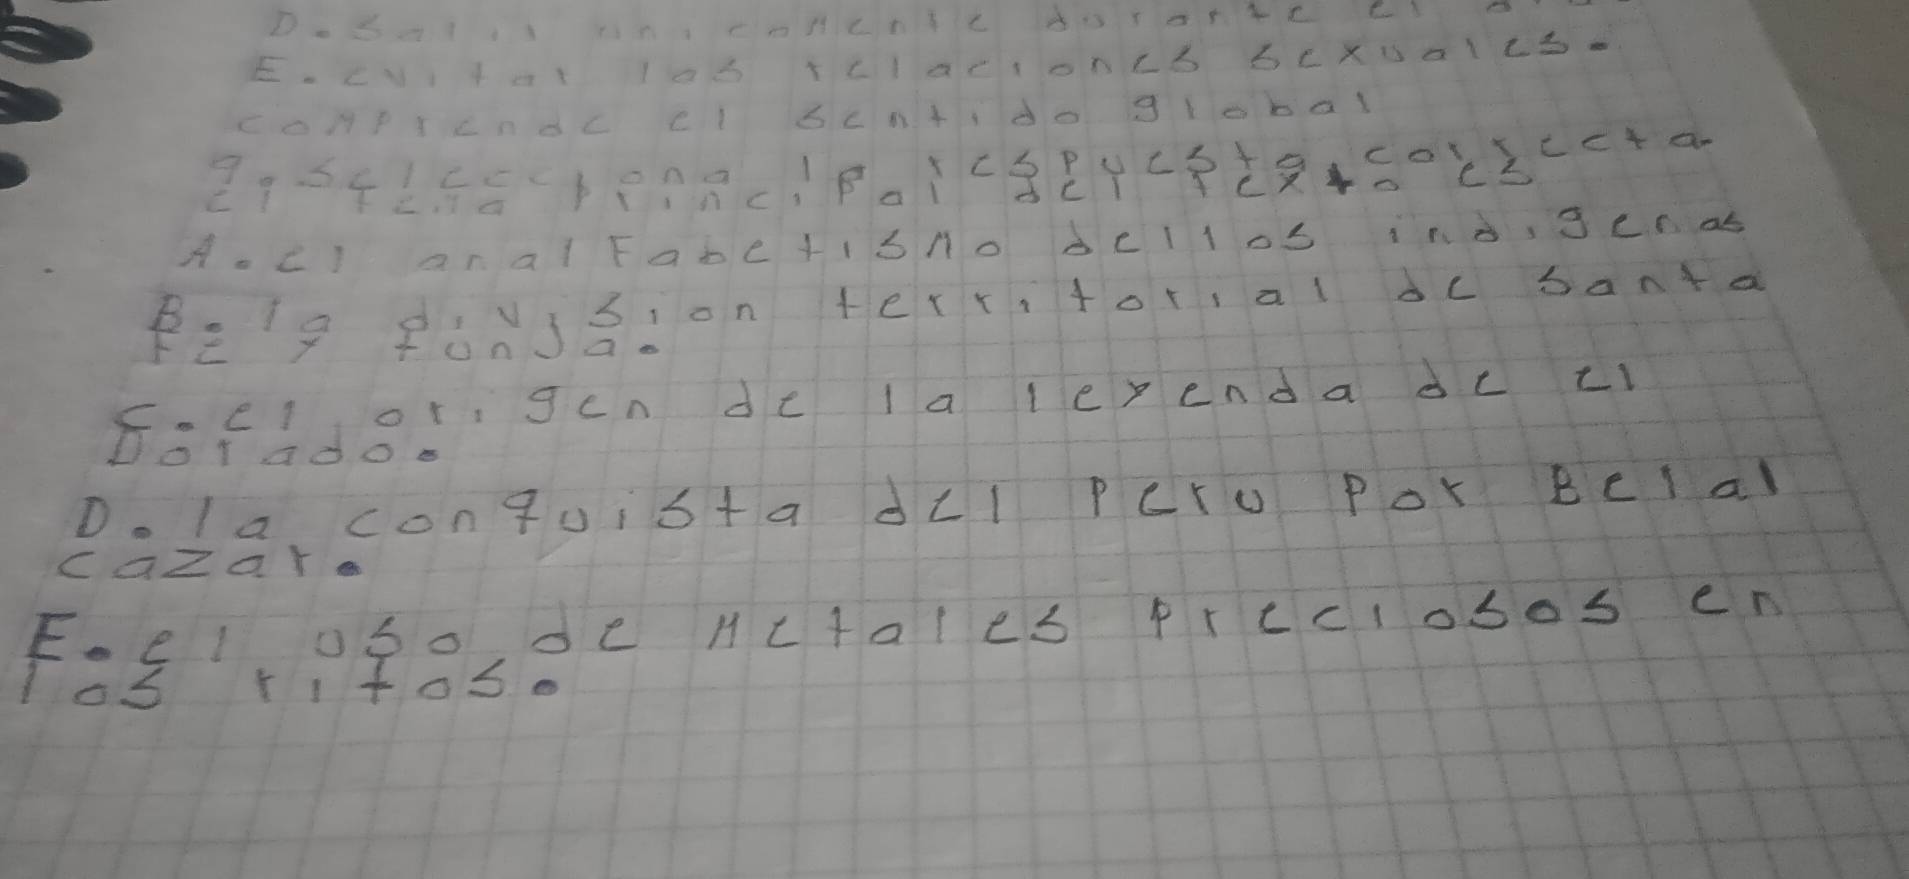 D. Salir unicamente durante el
E. evitar las relaciones sexuales.
comprende el sentido global
9. Selecciona la respuesta correcta.
el tema principal del texto es
A. el analfabetismo dellos indigenas
B. la division territorial de santa
fe y tunja.
C. el origen de la leyenda de el
Dorado.
D. la conquista del Peru por Belal
cazar.
E. el uso de Metales preciosos en
los ritos.